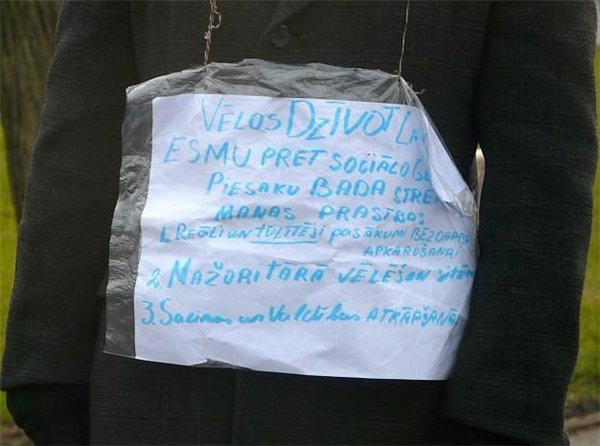 VĒLOS DZĪVOT
ESMU PRET SOCIĀLO
PIESAKU BADA
MANAS PRASĪBAS
1. REĀLI UN TŪLĪTĒJI pasākumi BEZDARBA
APKAROŠANAI
2. MAŽORITARĀ VĒLĒŠAN
3. Saeimas un Valdības ATKĀPŠANĀS